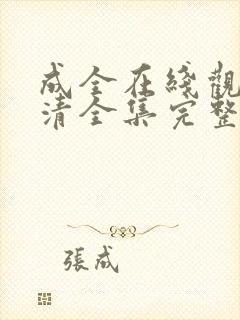 成全在綫觀
清全集完整
張成